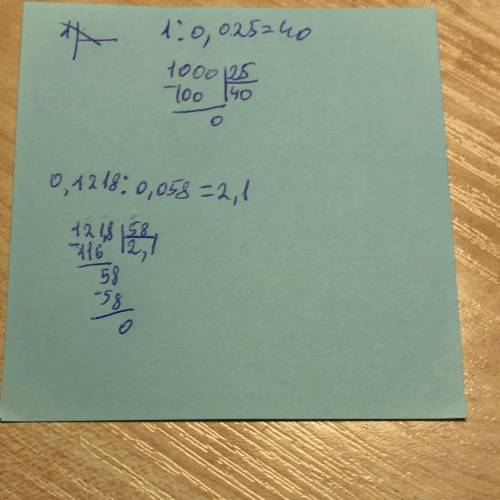 1 : 0,025 = 40
1000 | 25
- 100 | 40
0
0,1218 : 0,058 = 2,1
121,8 | 58
- 116 | 2,1
58
- 58
0